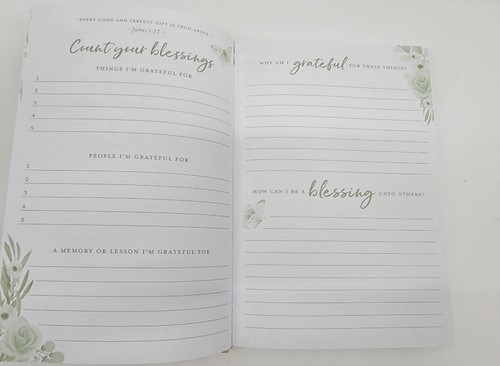 "EVERY GOOD AND PERFECT GIFT IS FROM ABOVE."
- James 1:17 -
Count your blessings
THINGS I'M GRATEFUL FOR
1
2
3
4
5
PEOPLE I'M GRATEFUL FOR
1
2
3
4
5
A MEMORY OR LESSON I'M GRATEFUL FOR
WHY AM I grateful FOR THESE THINGS?
HOW CAN I BE A blessing UNTO OTHERS?